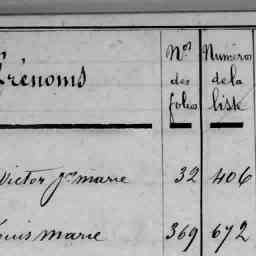 Prénoms
Nos des folios
Numéros de la liste
Victor Jn marie 32 406
Louis Marie 369 672